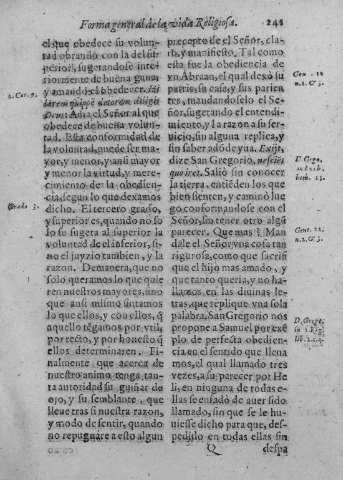 Forma general de la vida Religiosa. 241
el que obedece su volun-
tad obrando con la del su-
perior, sugetandose inte-
riormente de buena gana
y amando el obedecer,
darem quippè datorem diligit
Deus: Ama el Señor al que
obedece de buena volun-
tad. Esta conformidad de
la voluntad, puede ser ma-
yor, y menor, y assi mayor
y menor la virtud, y mere-
cimiento de la obedien-
cia, segun lo que dexamos
dicho. El tercero grado,
y superior es, quando no so
lo se sugeta al superior la
voluntad del inferior, si-
no el juyzio tambien, y la
razon. De manera, que no
solo queramos lo que quie
ren nuestros mayores, sino
que assi mismo sintamos
lo que ellos, y con ellos, q̃
aquello tẽgamos por vtil,
por recto, y por honesto q̃
ellos determinaren. Fi-
nalmente que acerca de
nuestro animo tenga tan-
ta autoridad su guiñar de
ojo, y su semblante, que
lleue tras si nuestra razon,
y modo de sentir, quando
no repugnare a esto algun
2. Cor. 9.
Grado 3.
precepto de el Señor, cla-
ro, y manifiesto. Tal como
esta fue la obediencia de
vn Abraan, el qual dexò su
patria, su casa, y sus parien
tes, mandandoselo el Se-
ñor, sugerando el entendi-
miento, y la razon a su ser-
uicio, sin alguna replica, y
sin saber adõde yua. Exijt,
dize San Gregorio, nesciẽs
quo iret. Saliò sin conocer
la tierra, entiẽden los que
bien sienten, y caminò lue
go conformandose con el
Señor, sin tener otro algũ
parecer. Que mas? Man
dale el Señor vna cosa tan
rigurosa, como que sacrifi
que el hijo mas amado, y
que tanto queria, y no ha-
llamos en las diuinas le-
tras, que replique vna sola
palabra, San Gregorio nos
propone a Samuel por exẽ
plo de perfecta obedien-
cia en el sentido que lleua
mos, el qual llamado tres
vezes, a su parecer por He
li, en ninguna de todas e-
llas se enfado de auer sido
llamado, sin que se le hu-
uiesse dicho para que, des-
pedido en todas ellas sin
Gen. 12
n. 2. & 3.
D. Greg.
hom. 15.
Genes. 22.
n. 2. & 3.
D. Grego.
in 1. Reg.
lib. 2. c. 4.
Q despa